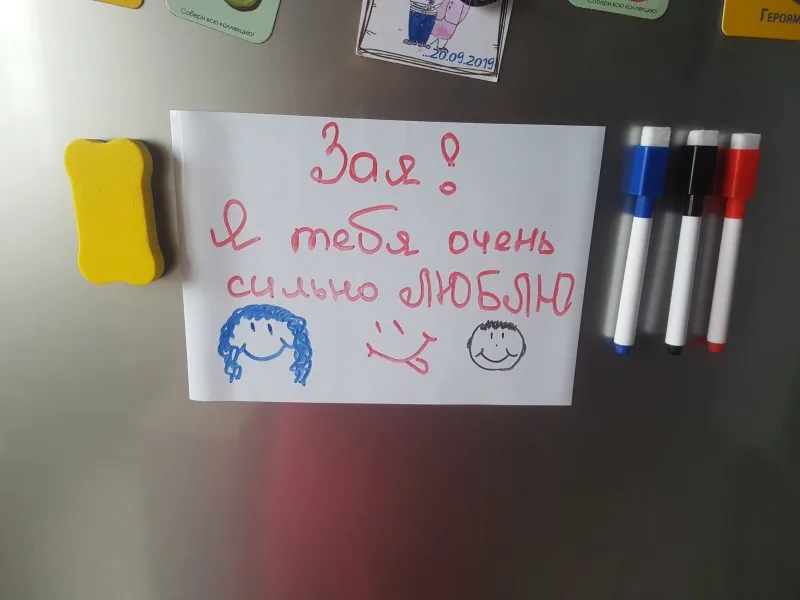 Собери всю коллекцию!
...20.09.2019
Собери всю коллекцию!
Героям
Зая!
Я тебя очень
сильно ЛЮБЛЮ